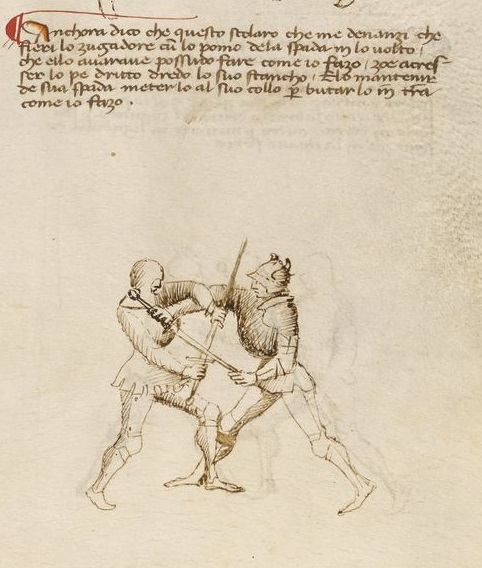 Anchora dico che questo scolaro che me denanzi che
fieri lo zugadore cũ lo pomo dela spada in lo volto.
che ello avarave possudo fare come io fazo, zoe acres-
ser lo pe dritto dredo lo suo stancho. E lo mantenir
de sua spada meter lo al suo collo ꝑ butar lo in t̃ra
come io fazo.